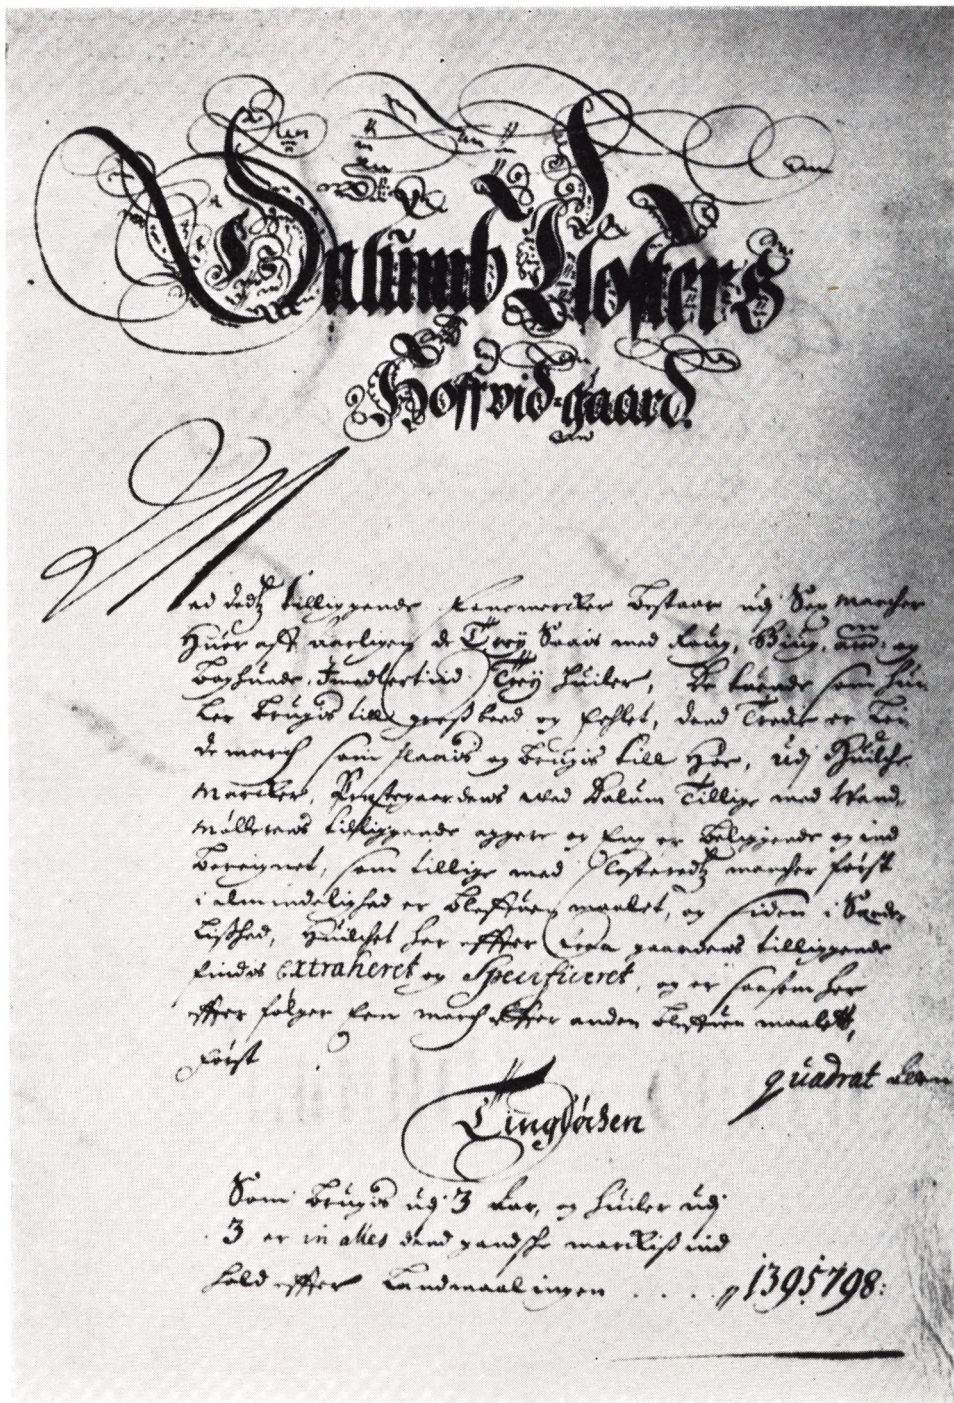 Dalumb Closters
Hoffvid=gaard.
Med dedtz tilliggende Eenemercker bestaar udj Sex marcher
Huor aff aarligen de Trey Saais med Raug, Biug, og
Boghuede. Imedlertiid Trey huiler, De tuende som hun
ler brugis till græsbeed og Fehlet, dend Tredie er Lon
de march som slaais og brugis till Høe, udj Huilche
Marcker, Præstegaardens wed Dalum Tillige med Wand
Møllerens tilliggende agger og Eng er beliggende og ind
bereignet, som tillige med Closteredtz marcher først
i almindelighed er bleffuen maalet, og siden i Særde
lished, Huilchet her effter gaardens tilliggende
findis Extraheret og Specificeret, og er saasom her
effter følger Een march effter anden bleffuen maalett,
Først
quadrat Alen
Tingløchen
Som brugis udj 3 Aar, og huiler udj
3 er in alles dend gandsche marckis ind
hold effter Landmaalingen . . . . 1395798: